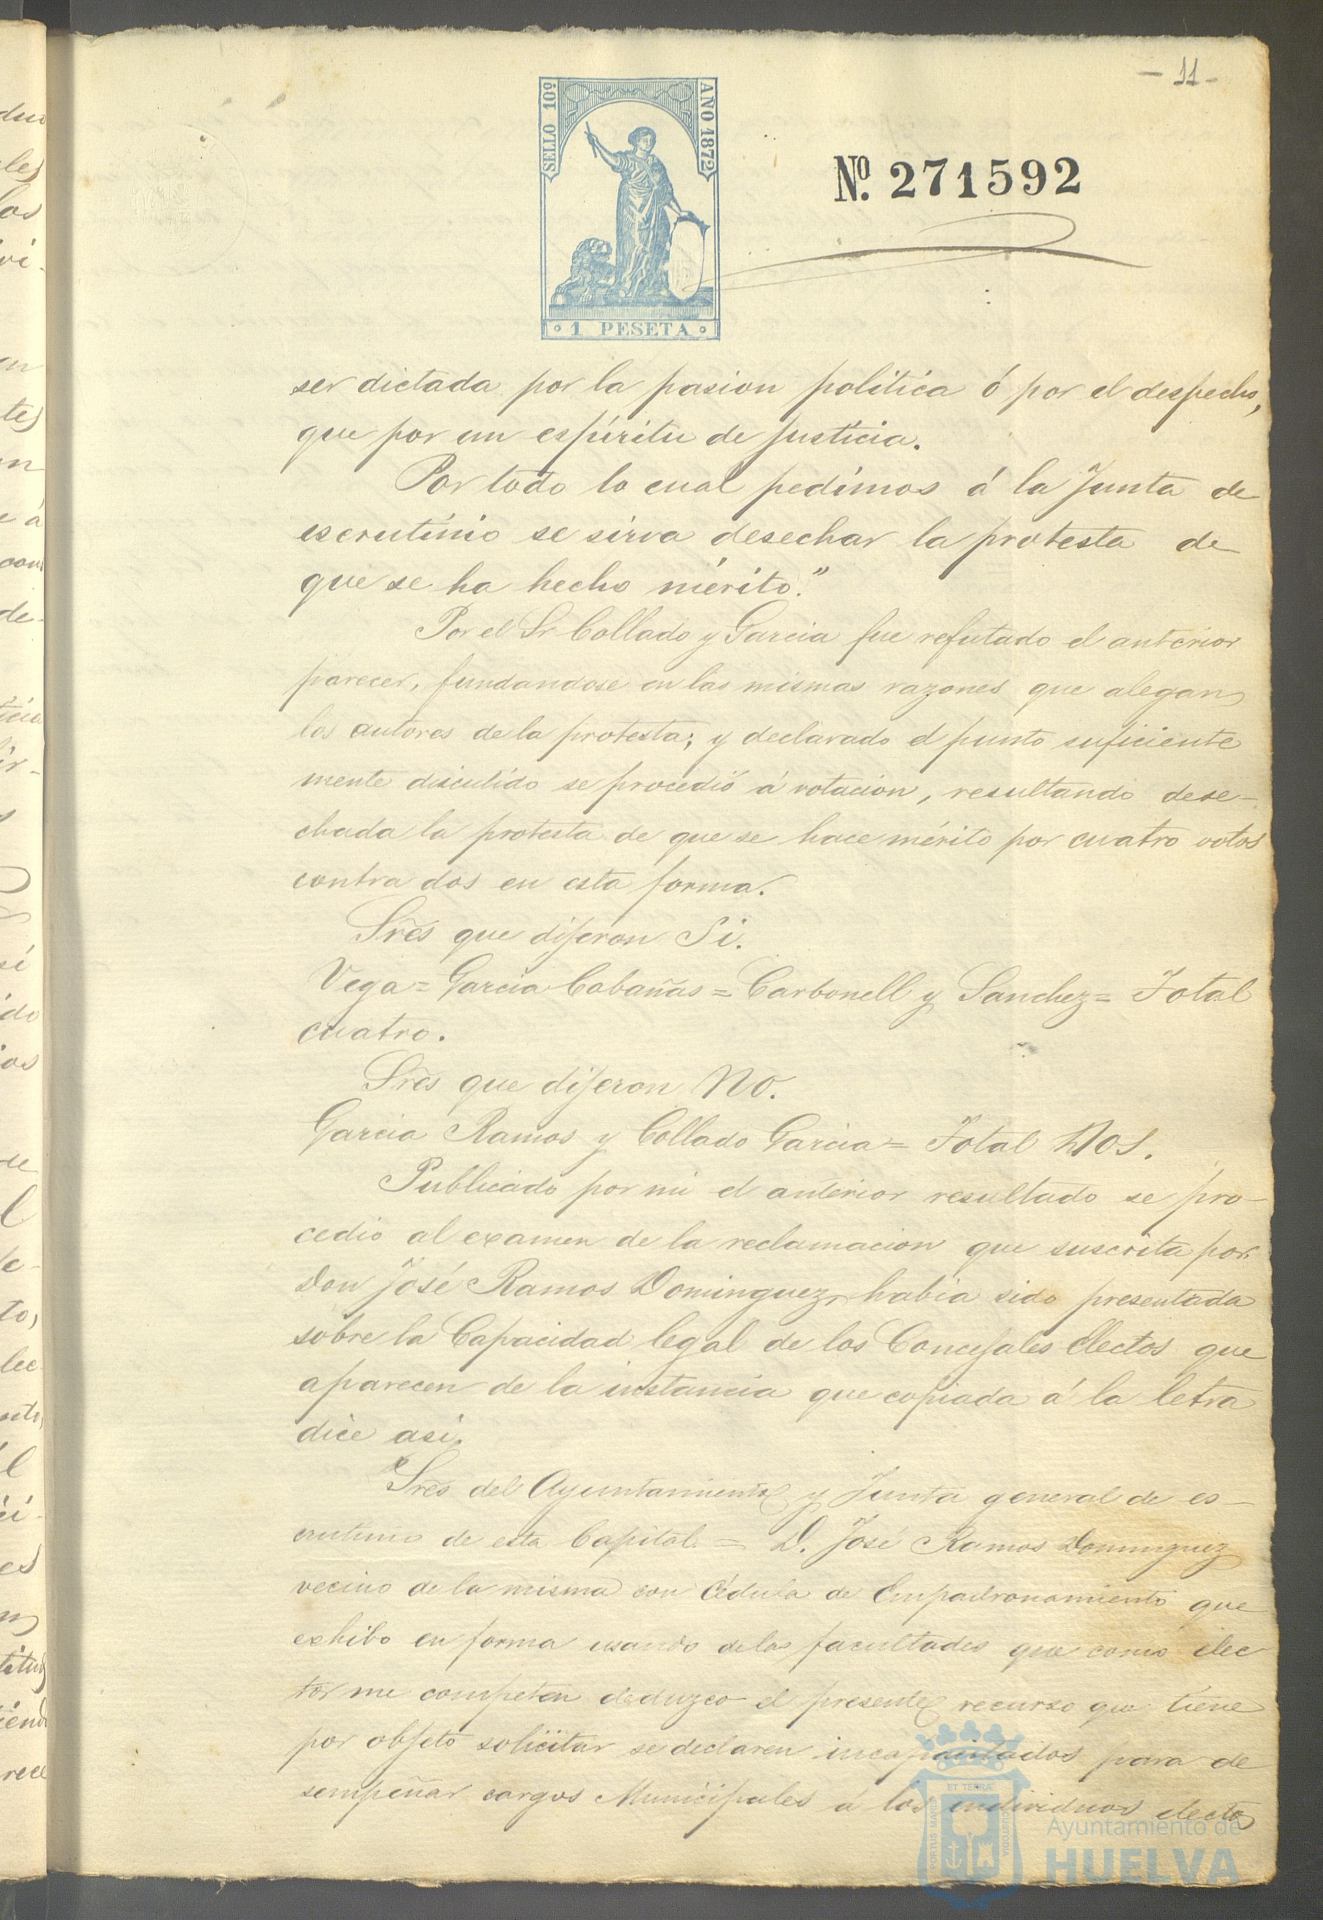 - 11 -
SELLO 10º
AÑO 1872
Nº. 271592
1 PESETA
ser dictada por la pasion politica ó por el despecho,
que por un espíritu de justicia.
Por todo lo cual pedimos á la Junta de
escrutinio se sirva desechar la protesta de
que se ha hecho mérito."
Por el Sr Collado y Garcia fue refutado el anterior
parecer, fundandose en las mismas razones que alegan
los autores de la protesta; y declarado el punto suficiente
mente discutido se procedió á votacion, resultando dese-
chada la protesta de que se hace mérito por cuatro votos
contra dos en esta forma.
Sres que dijeron Si.
Vega = Garcia Cabañas = Carbonell y Sanchez = Total
cuatro.
Sres que dijeron No.
Garcia Ramos y Collado Garcia = Total dos.
Publicado por mi el anterior resultado se pro-
cedio al examen de la reclamacion que suscrita por
Don José Ramos Dominguez, habia sido presentada
sobre la Capacidad legal de los Concejales Electos que
aparecen de la instancia que copiada á la letra
dice asi.
Sres del Ayuntamiento y Junta general de es-
crutinio de esta Capital = D. José Ramos Dominguez
vecino de la misma con Cédula de Empadronamiento que
exhibo en forma usando de las facultades que como elec
tor me competen deduzco el presente recurso que tiene
por objeto solicitar se declaren incapacitados para de
sempeñar cargos Municipales á los individuos electos
ET TERRÆ
PORTUS MARIS
CUSTODIA
Ayuntamiento de
HUELVA